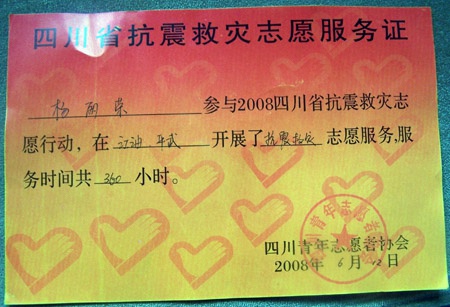 四川省抗震救灾志愿服务证
杨丽荣 参与2008四川省抗震救灾志
愿行动，在 江油 平武 开展了 抗震救灾 志愿服务,服
务时间共 360 小时。
四川青年志愿者协会
2008年 6 月 12 日